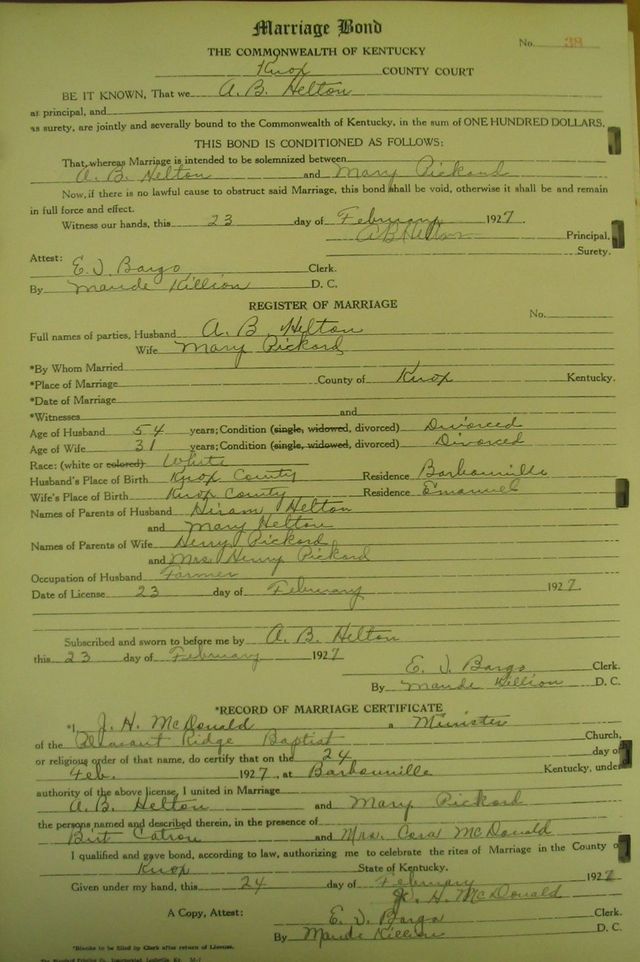 Marriage Bond
No. 38
THE COMMONWEALTH OF KENTUCKY
Knox COUNTY COURT
BE IT KNOWN, That we A. B. Helton
as principal, and
as surety, are jointly and severally bound to the Commonwealth of Kentucky, in the sum of ONE HUNDRED DOLLARS.
THIS BOND IS CONDITIONED AS FOLLOWS:
That, whereas Marriage is intended to be solemnized between
A. B. Helton and Mary Pickard
Now, if there is no lawful cause to obstruct said Marriage, this bond shall be void, otherwise it shall be and remain
in full force and effect.
Witness our hands, this 23 day of February 1927.
A B Helton Principal,
Surety.
Attest:
E. J. Bargo Clerk.
By Maude Killion D. C.
REGISTER OF MARRIAGE
No.
Full names of parties, Husband A. B. Helton
Wife Mary Pickard
*By Whom Married
*Place of Marriage County of Knox Kentucky.
*Date of Marriage
*Witnesses and
Age of Husband 54 years; Condition (single, widowed, divorced) Divorced
Age of Wife 31 years; Condition (single, widowed, divorced) Divorced
Race: (white or colored) White
Husband's Place of Birth Knox County Residence Barbourville
Wife's Place of Birth Knox County Residence Emanuel
Names of Parents of Husband Hiram Helton
and Mary Helton
Names of Parents of Wife Henry Pickard
and Mrs Henry Pickard
Occupation of Husband Farmer
Date of License 23 day of February 1927.
Subscribed and sworn to before me by A. B. Helton
this 23 day of February 1927
E. J. Bargo Clerk.
By Maude Killion D. C.
*RECORD OF MARRIAGE CERTIFICATE
*I, J. H. McDonald a Minister
of the Pleasant Ridge Baptist Church,
or religious order of that name, do certify that on the 24 day of
Feb. 1927, at Barbourville Kentucky, under
authority of the above license, I united in Marriage
A. B. Helton and Mary Pickard
the persons named and described therein, in the presence of
Birt Catron and Mrs. Cora McDonald
I qualified and gave bond, according to law, authorizing me to celebrate the rites of Marriage in the County of
Knox State of Kentucky.
Given under my hand, this 24 day of February 1927
J. H. McDonald
A Copy, Attest: E. J. Bargo Clerk.
By Maude Killion D. C.
*Blanks to be filled by Clerk after return of License.